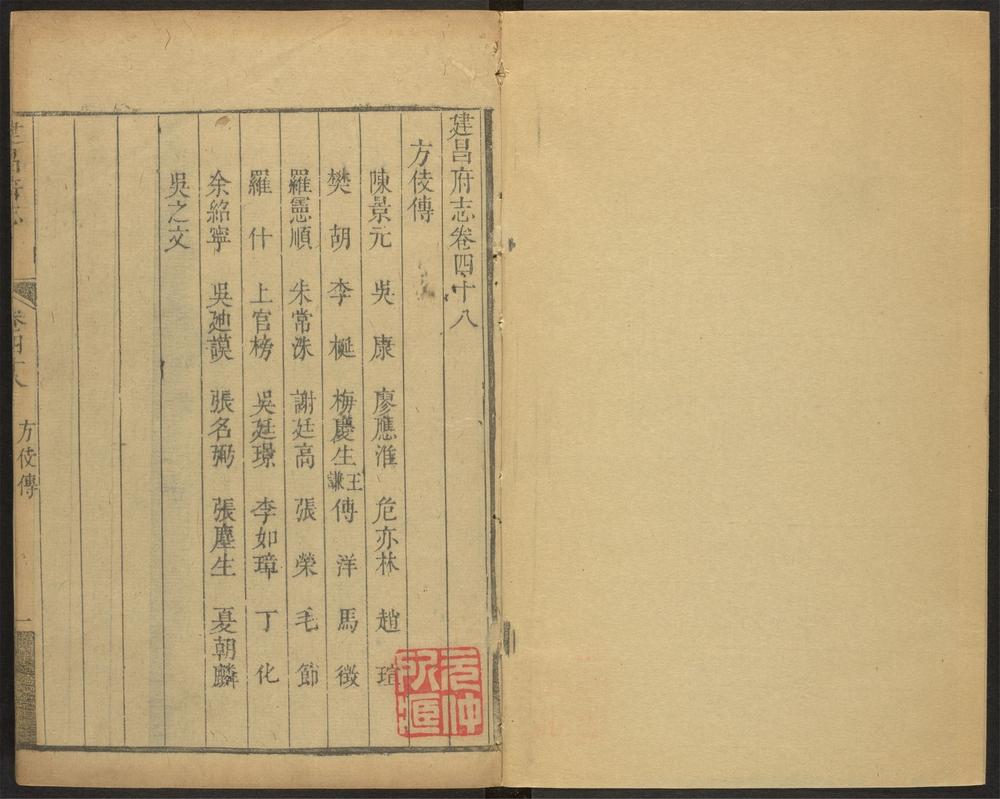 建昌府志卷四十八
方伎傳
陳景元 吳康 廖應淮 危亦林 趙瑄
樊胡 李梴 梅慶生 王謙 傅洋 馬徵
羅憲順 朱常洙 謝廷高 張榮 毛節
羅什 上官榜 吳廷璟 李如璋 丁化
余紹寧 吳廸謨 張名弼 張塵生 夏朝麟
吳之文
建昌府志 卷四十八 方伎傳 一